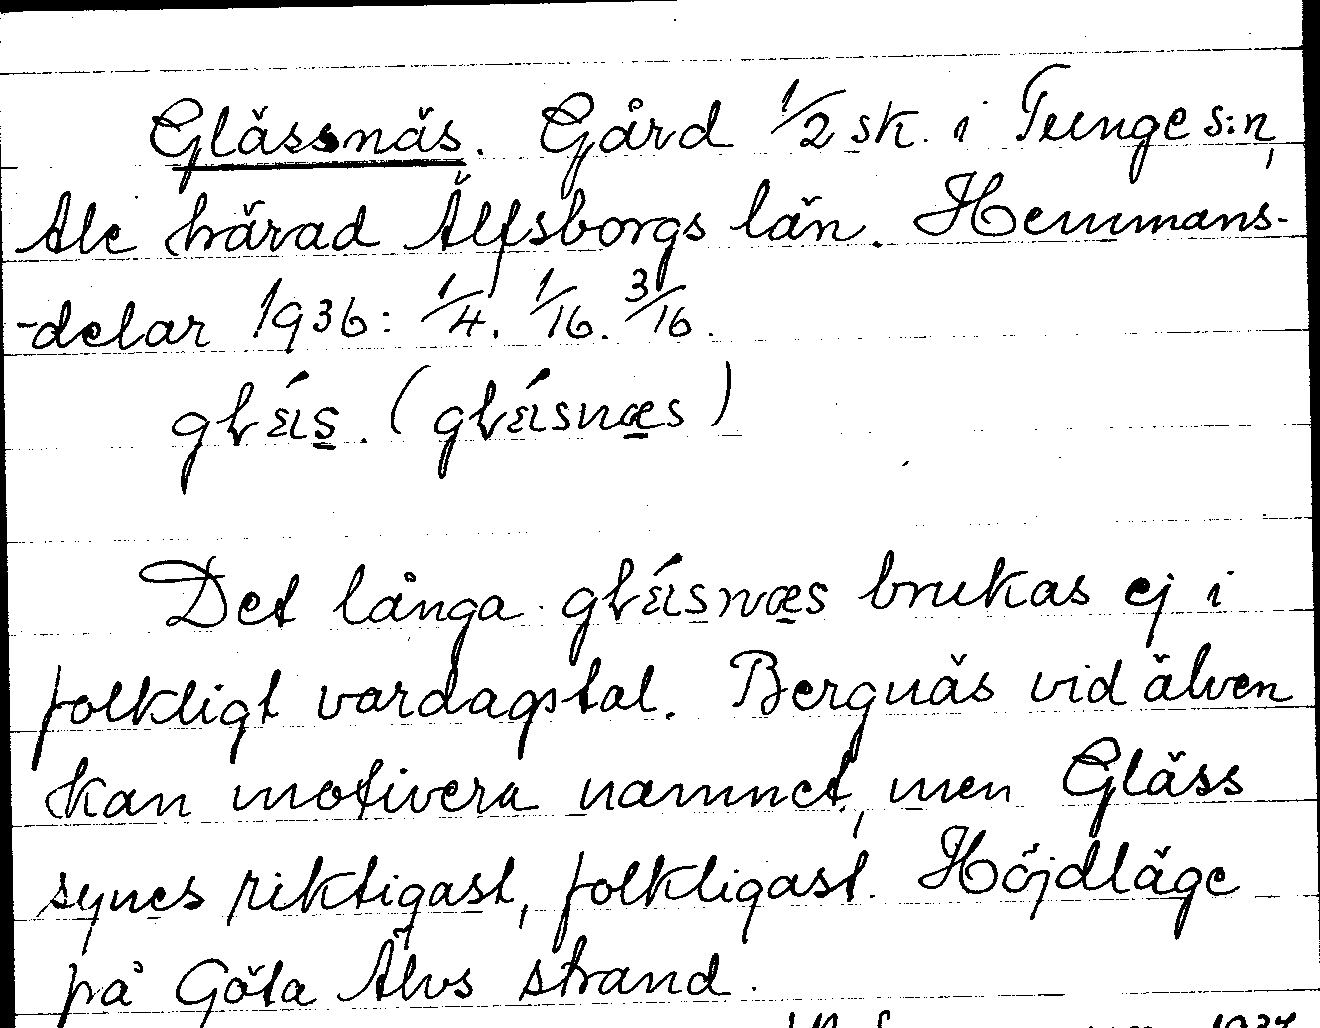 Glässnäs. Gård 1/2 sk. i Tunge s:n,
Ale härad Älfsborgs län. Hemmans-
-delar 1936: 1/4. 1/16. 3/16.
glɛ́ıs. (glɛ́ısnæs)
Det långa glɛ́ısnæs brukas ej i
folkligt vardagstal. Bergnäs vid älven
kan motivera namnet, men Gläss
synes riktigast, folkligast. Höjdläge
på Göta Älvs strand.
1937